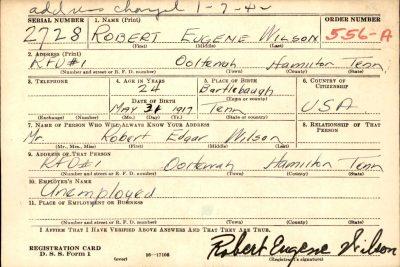 address changed 1-7-42
SERIAL NUMBER 1. NAME (Print) ORDER NUMBER
2728 ROBERT EUGENE WILSON 556-A
(First) (Middle) (Last)
2. ADDRESS (Print)
RFD#1 Ooltewah Hamilton Tenn
(Number and street or R. F. D. number) (Town) (County) (State)
3. TELEPHONE 4. AGE IN YEARS 5. PLACE OF BIRTH 6. COUNTRY OF CITIZENSHIP
24 Bartlebaugh
DATE OF BIRTH (Town or county)
May 31 1917 Tenn USA
(Exchange) (Number) (Mo.) (Day) (Yr.) (State or country)
7. NAME OF PERSON WHO WILL ALWAYS KNOW YOUR ADDRESS 8. RELATIONSHIP OF THAT PERSON
Mr. Robert Edgar Wilson
(Mr., Mrs., Miss) (First) (Middle) (Last)
9. ADDRESS OF THAT PERSON
RFD#1 Ooltewah Hamilton Tenn
(Number and street or R. F. D. number) (Town) (County) (State)
10. EMPLOYER'S NAME
Unemployed
11. PLACE OF EMPLOYMENT OR BUSINESS
(Number and street or R. F. D. number) (Town) (County) (State)
I AFFIRM THAT I HAVE VERIFIED ABOVE ANSWERS AND THAT THEY ARE TRUE.
Robert Eugene Wilson
REGISTRATION CARD
D. S. S. Form 1 (over) 16—17105 (Registrant's signature)